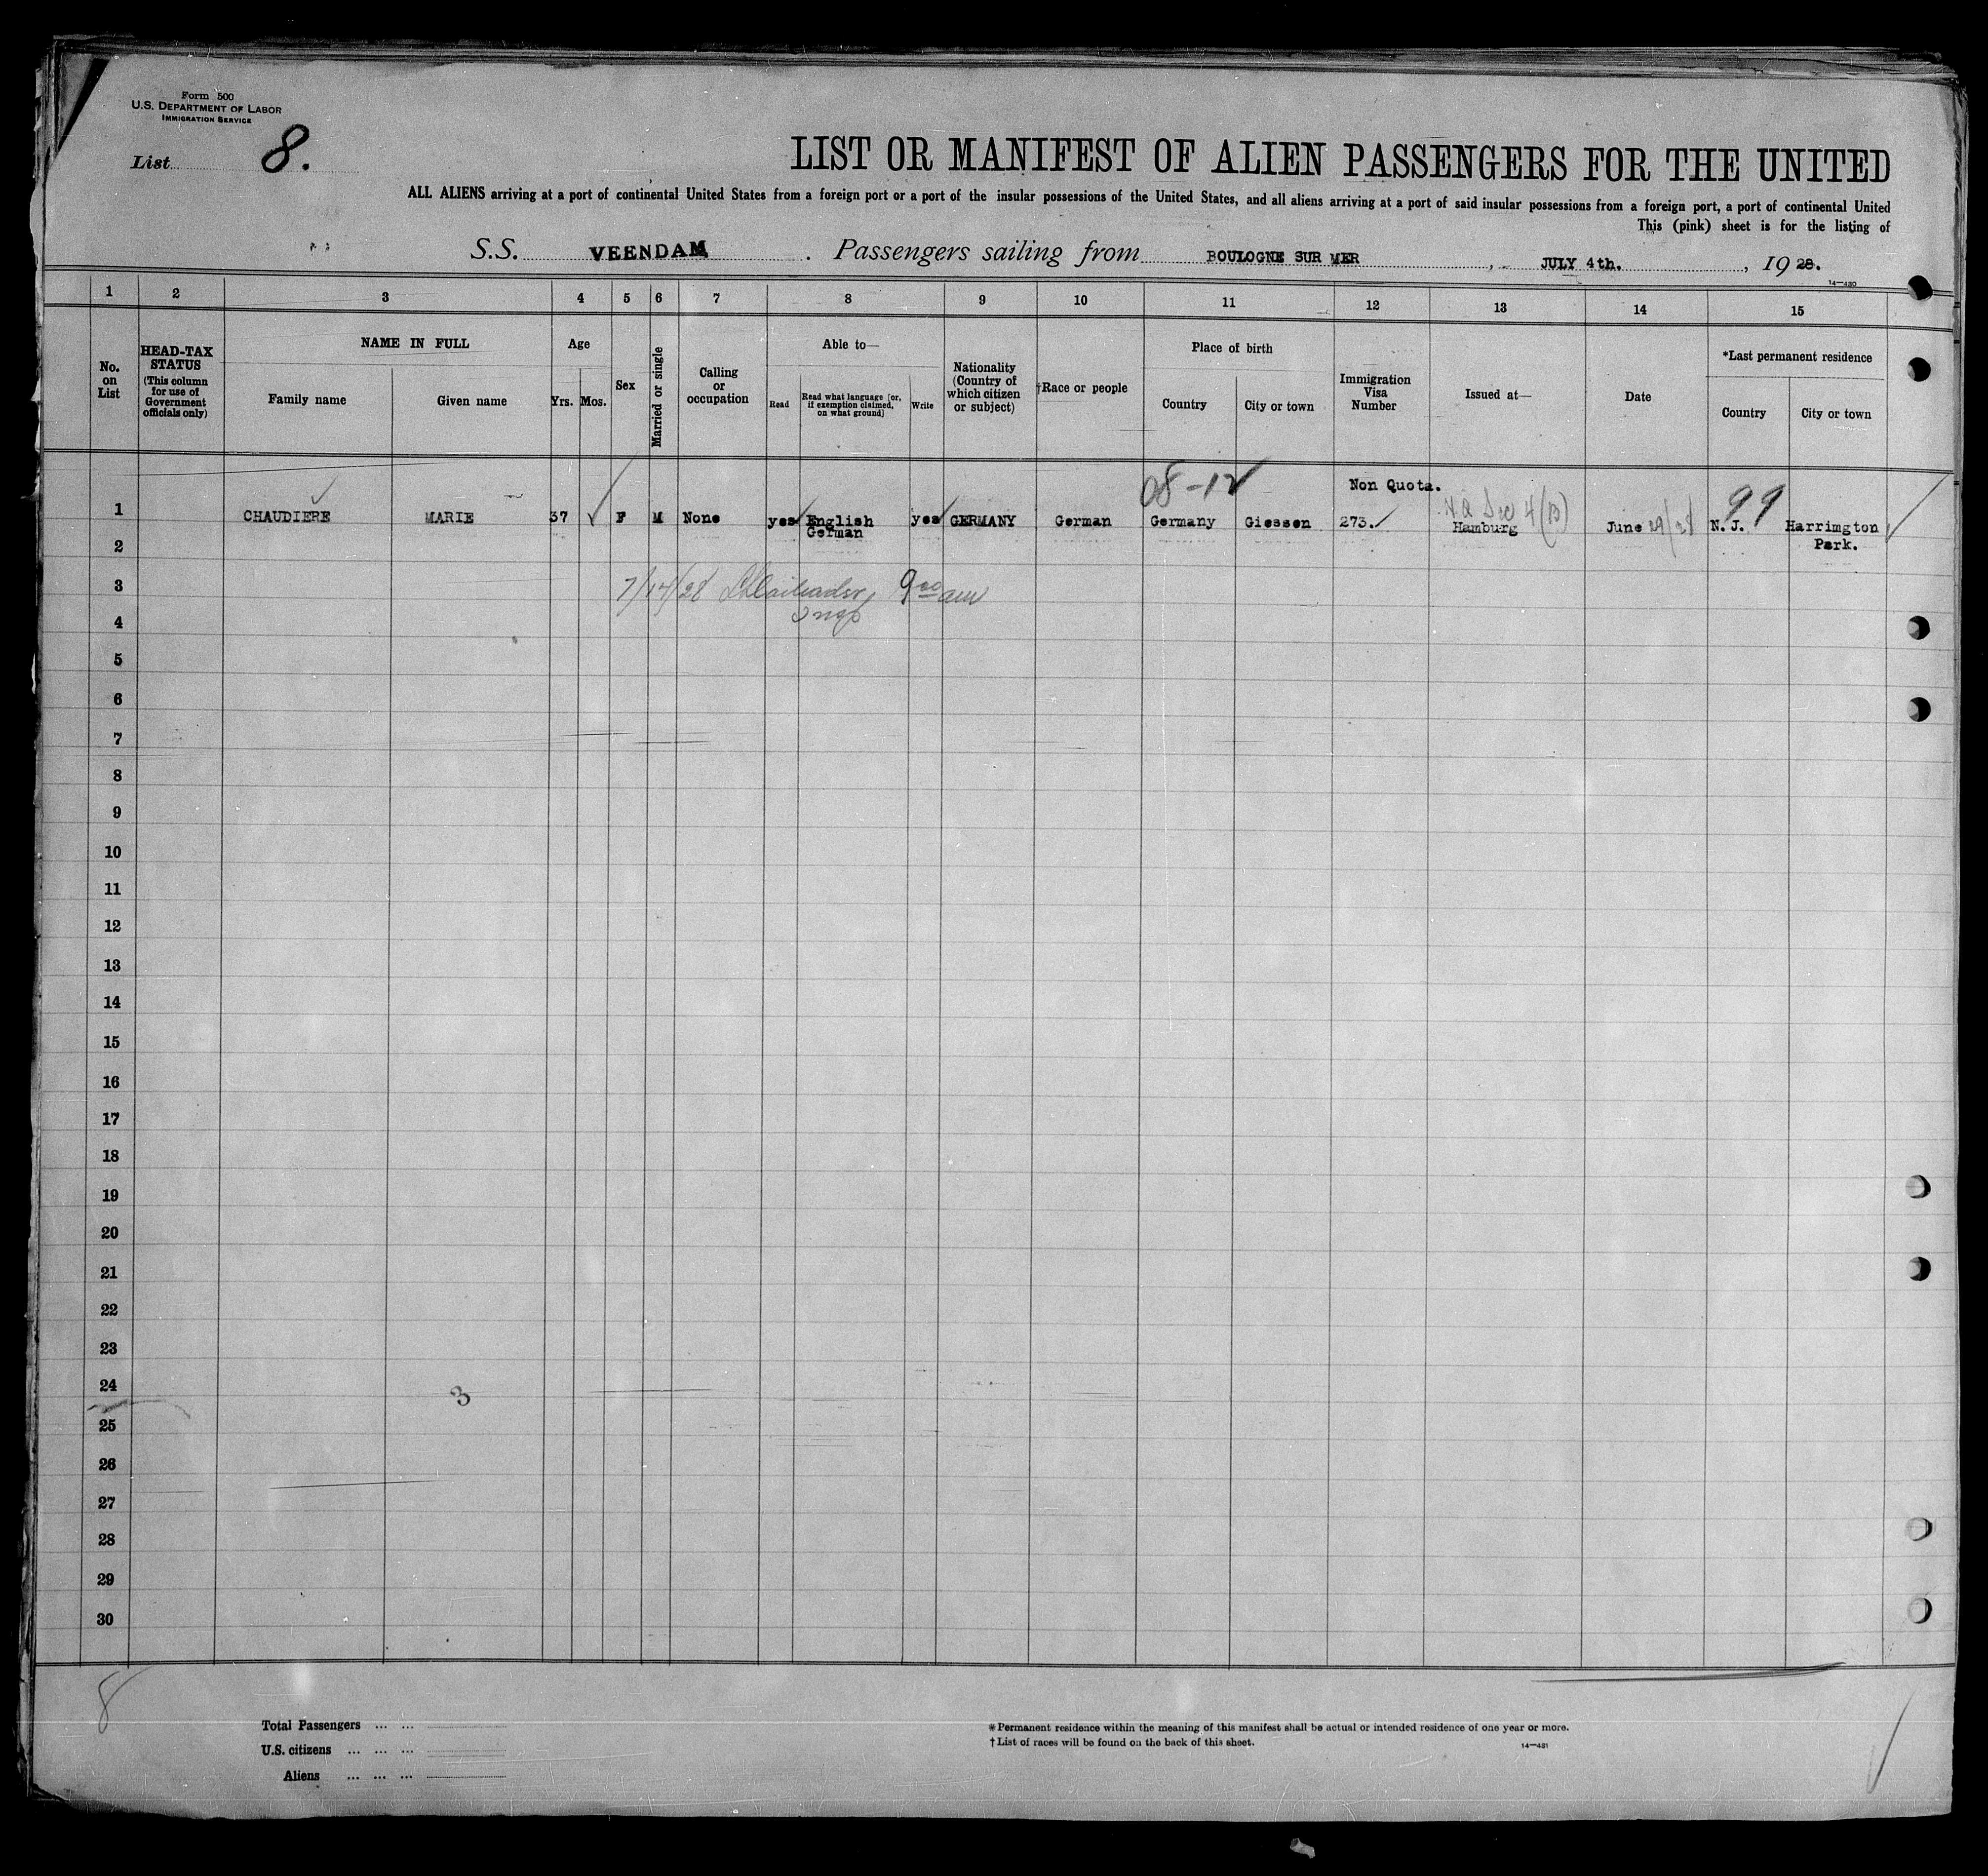 Form 500
U.S. DEPARTMENT OF LABOR
IMMIGRATION SERVICE
List 8.
LIST OR MANIFEST OF ALIEN PASSENGERS FOR THE UNITED
ALL ALIENS arriving at a port of continental United States from a foreign port or a port of the insular possessions of the United States, and all aliens arriving at a port of said insular possessions from a foreign port, a port of continental United
This (pink) sheet is for the listing of
S.S. VEENDAM. Passengers sailing from BOULOGNE SUR MER, JULY 4th., 1928.
14—480
1 2 3 4 5 6 7 8 9 10 11 12 13 14 15
No. on List
HEAD-TAX STATUS (This column for use of Government officials only)
NAME IN FULL
Family name Given name
Age
Yrs. Mos.
Sex
Married or single
Calling or occupation
Able to—
Read Read what language [or, if exemption claimed, on what ground] Write
Nationality (Country of which citizen or subject)
†Race or people
Place of birth
Country City or town
Immigration Visa Number
Issued at—
Date
*Last permanent residence
Country City or town
08-12 Non Quota. 99
1 CHAUDIERE MARIE 37 F M None yes English yes GERMANY German Germany Giessen 273. Hamburg June 29/28 N.J. Harrimgton
German Park.
2
3 7/14/28 9 00 am
4
5
6
7
8
9
10
11
12
13
14
15
16
17
18
19
20
21
22
23
24 3
25
26
27
28
29
30
8
Total Passengers ... ...
U.S. citizens ... ... ...
Aliens ... ... ...
*Permanent residence within the meaning of this manifest shall be actual or intended residence of one year or more.
†List of races will be found on the back of this sheet.
14—481